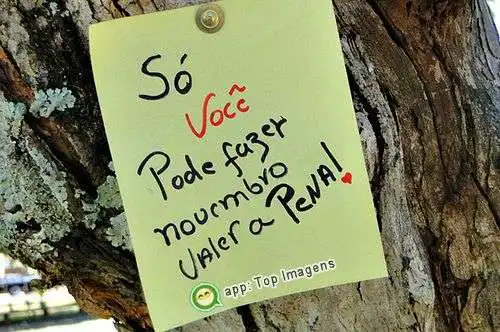 Só
Você
Pode fazer
novembro
VALER A PENA!
app: Top Imagens